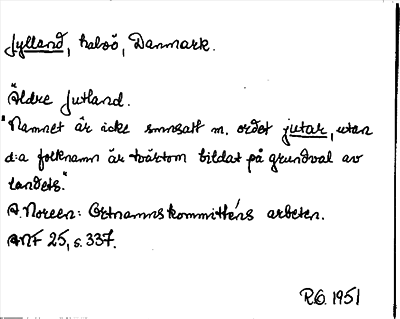 Jylland, halvö, Danmark.
Äldre Jutland.
"Namnet är icke smnsatt m. ordet jutar, utan
d:a folknamn är tvärtom bildat på grundval av
landets."
A. Noreen: Ortnamnskommitténs arbeten.
ANF 25, s. 337.
R.O. 1951